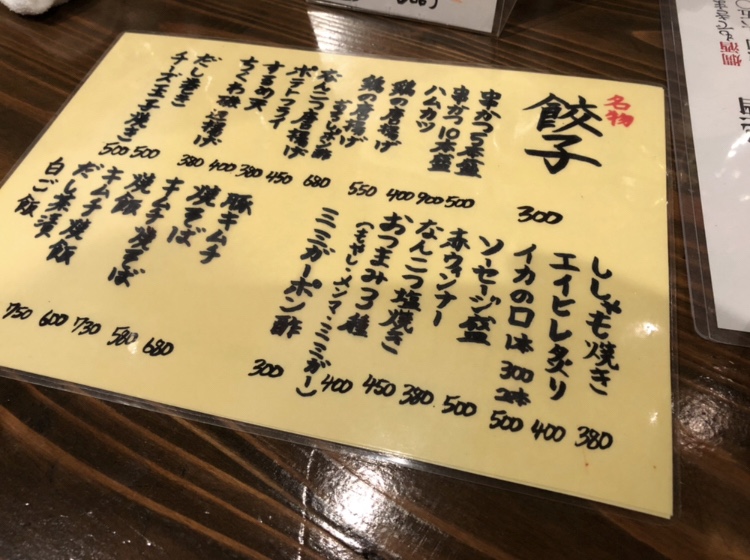 名物
餃子 300
串かつ5本盛 500
串かつ10本盛 900
ハムカツ 400
鶏の唐揚げ 550
鶏の唐揚げ
おろしポン酢 680
なんこつ唐揚げ 450
ポテトフライ 380
するめ天 400
ちくわ磯辺揚げ 380
だし巻き 500
チーズ玉子焼き 500
ししゃも焼き 380
エイヒレ炙り 400
イカの口 1本 300
2本 500
ソーセージ盛 500
赤ウィンナー 380
なんこつ塩焼き 450
おつまみ3種 400
(もやし・メンマ・ミミガー)
ミミガーポン酢 300
豚キムチ 680
焼そば 580
キムチ焼そば 730
焼飯 600
キムチ焼飯 750
だし茶漬
白ご飯